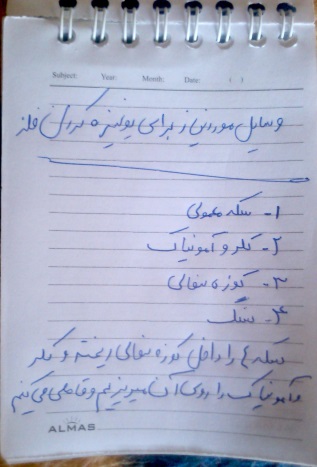 Subject: Year: Month: Date: ( )
وسایل مورد نیاز برای یونیزه کردن فلز
۱- سکه معمولی
۲- کلر و آمونیاک
۳- کوزه سفالی
۴- سنگ
سکه ها را داخل کوزه سفالی ریخته و کلر
و آمونیاک را روی آن میریزیم و قاطی می کنیم
ALMAS